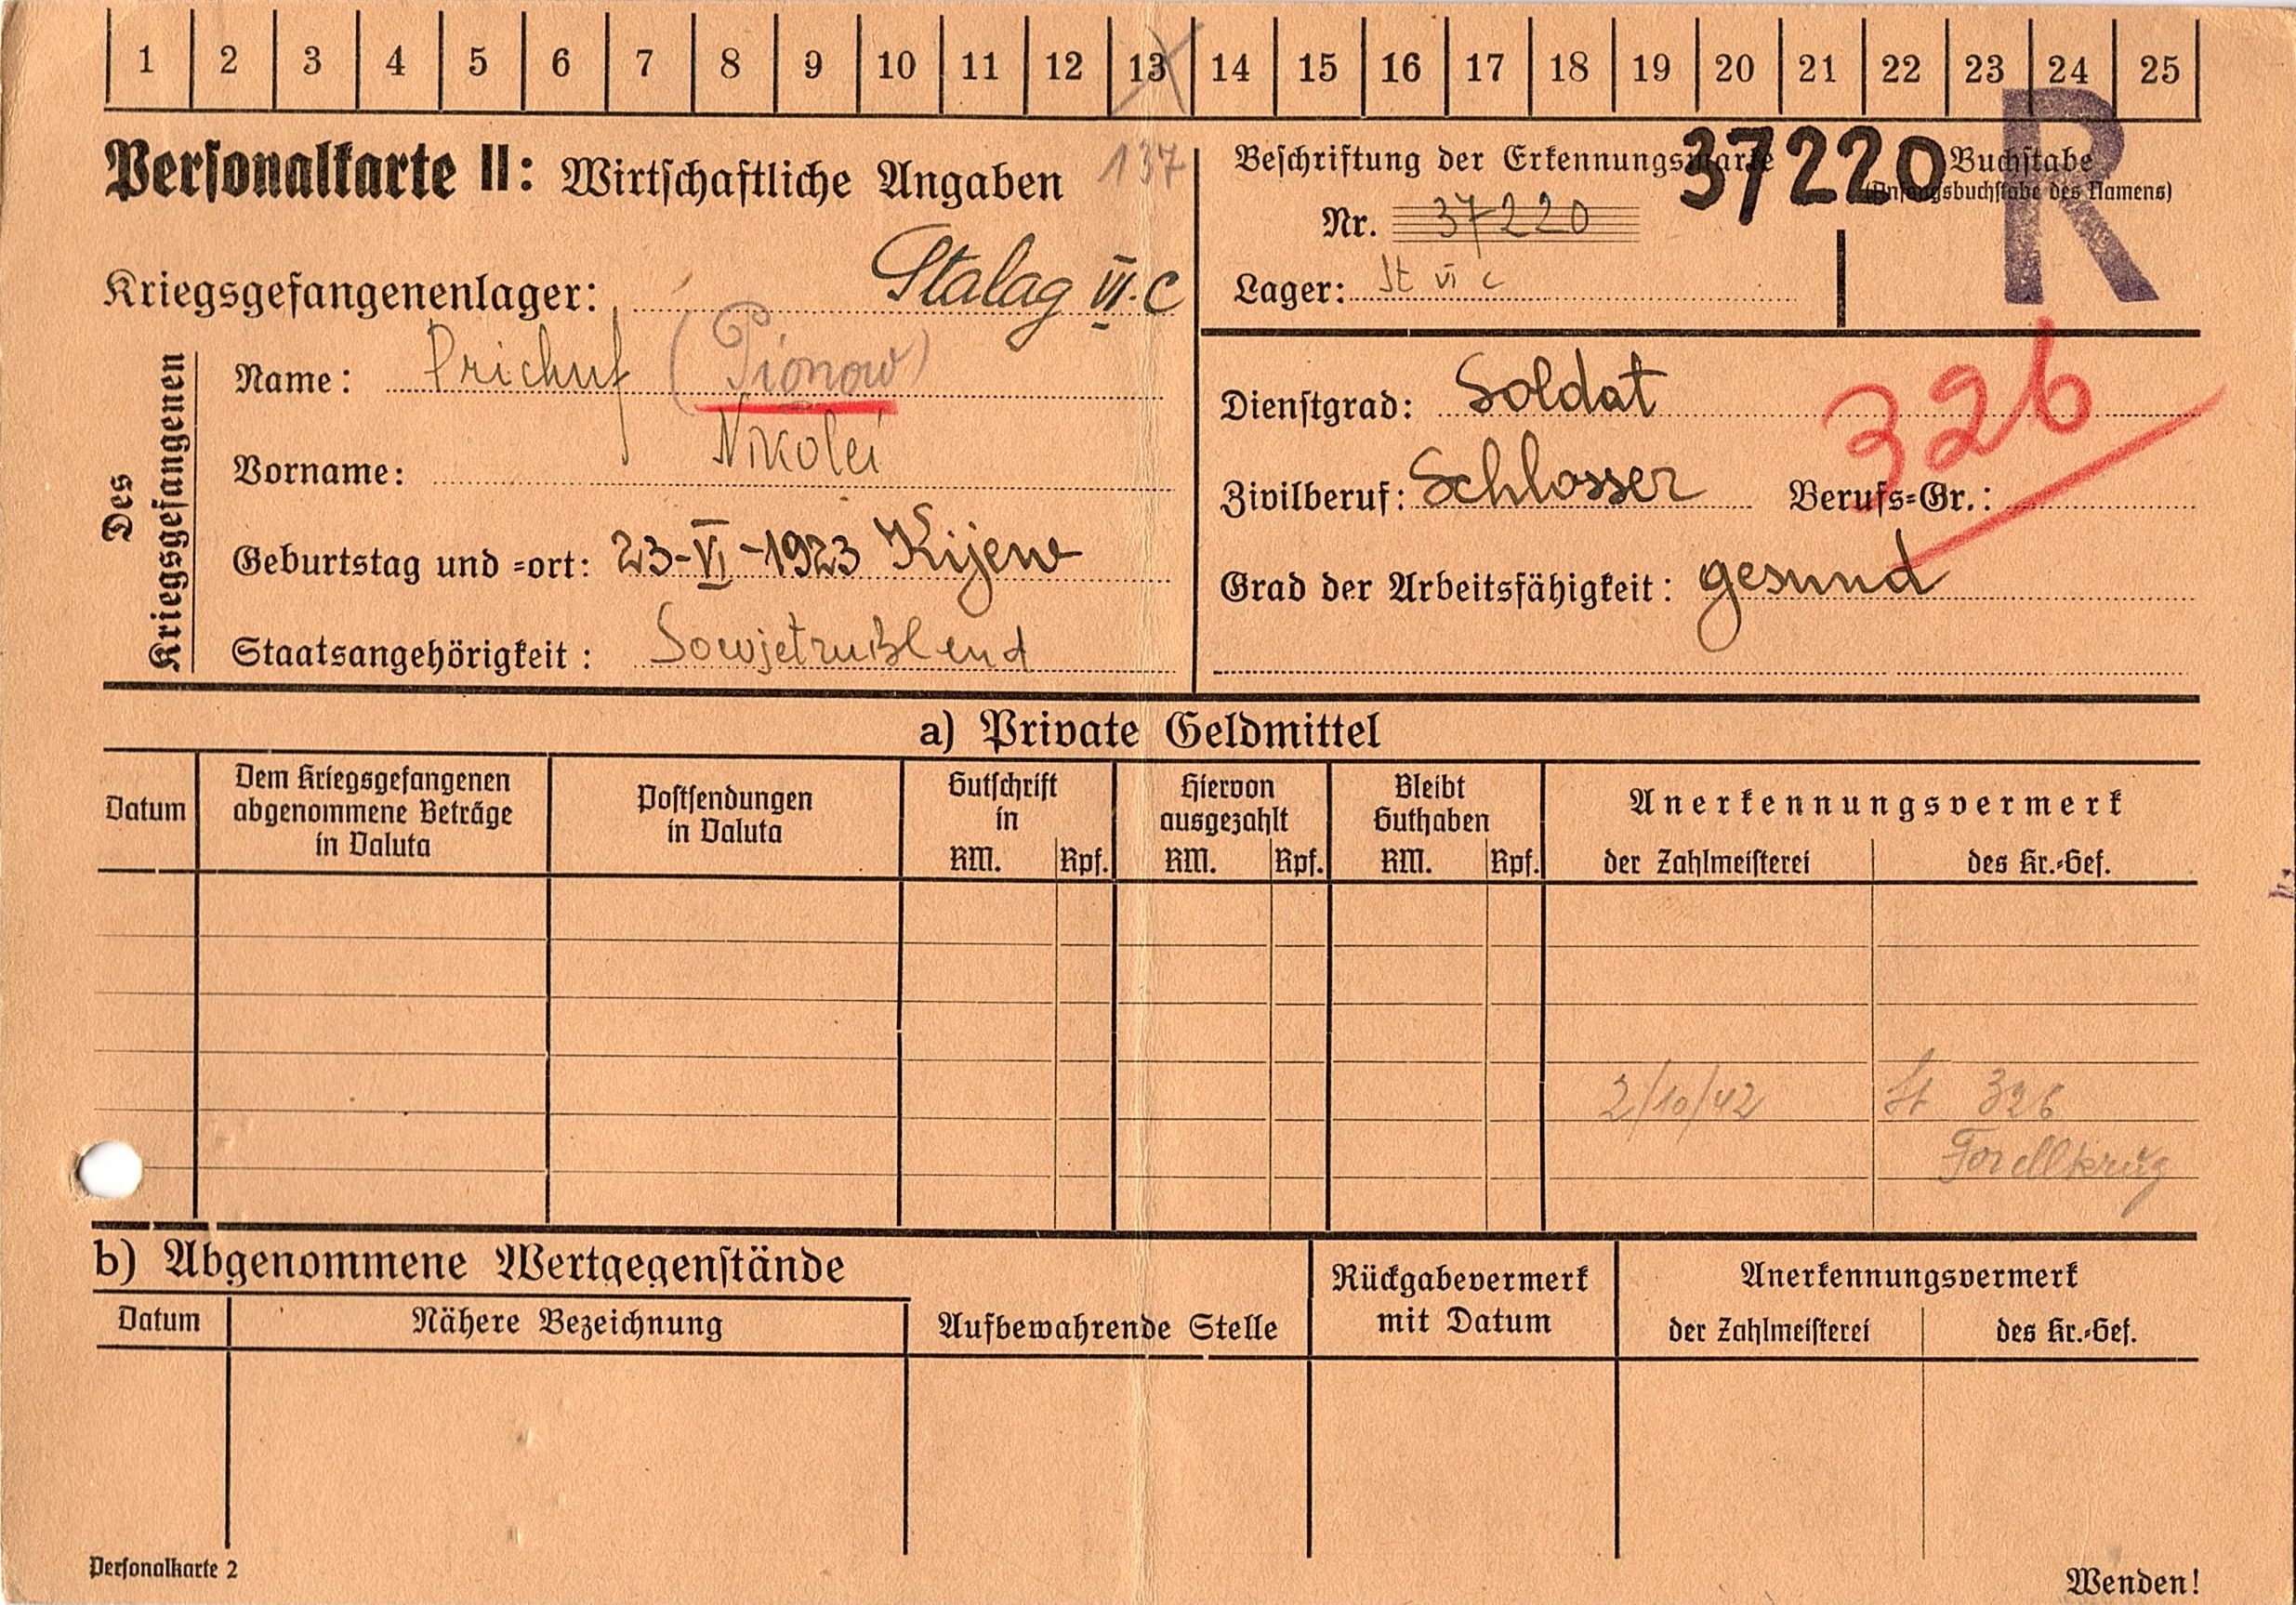 1 2 3 4 5 6 7 8 9 10 11 12 13 14 15 16 17 18 19 20 21 22 23 24 25
Personalkarte II: Wirtschaftliche Angaben
137
Kriegsgefangenenlager: Stalag VI.C
Des Kriegsgefangenen
Name: (Pionow)
Vorname: Nikolei
Geburtstag und =ort: 23-VI-1923 Kijew
Staatsangehörigkeit: Sowjetrußlend
Beschriftung der Erkennungsmarke
37220
Nr. 37220
Lager: St VI C
Buchstabe
(Anfangsbuchstabe des Namens)
R
Dienstgrad: Soldat
326
Zivilberuf: Schlosser Berufs=Gr.:
Grad der Arbeitsfähigkeit: gesund
a) Private Geldmittel
Datum
Dem Kriegsgefangenen
abgenommene Beträge
in Valuta
Postsendungen
in Valuta
Gutschrift
in
RM. Rpf.
Hiervon
ausgezahlt
RM. Rpf.
Bleibt
Guthaben
RM. Rpf.
Anerkennungsvermerk
der Zahlmeisterei des Kr.=Gef.
2/10/42 St 326
Forellkrug
b) Abgenommene Wertgegenstände
Datum Nähere Bezeichnung
Aufbewahrende Stelle
Rückgabevermerk
mit Datum
Anerkennungsvermerk
der Zahlmeisterei des Kr.=Gef.
Personalkarte 2
Wenden!